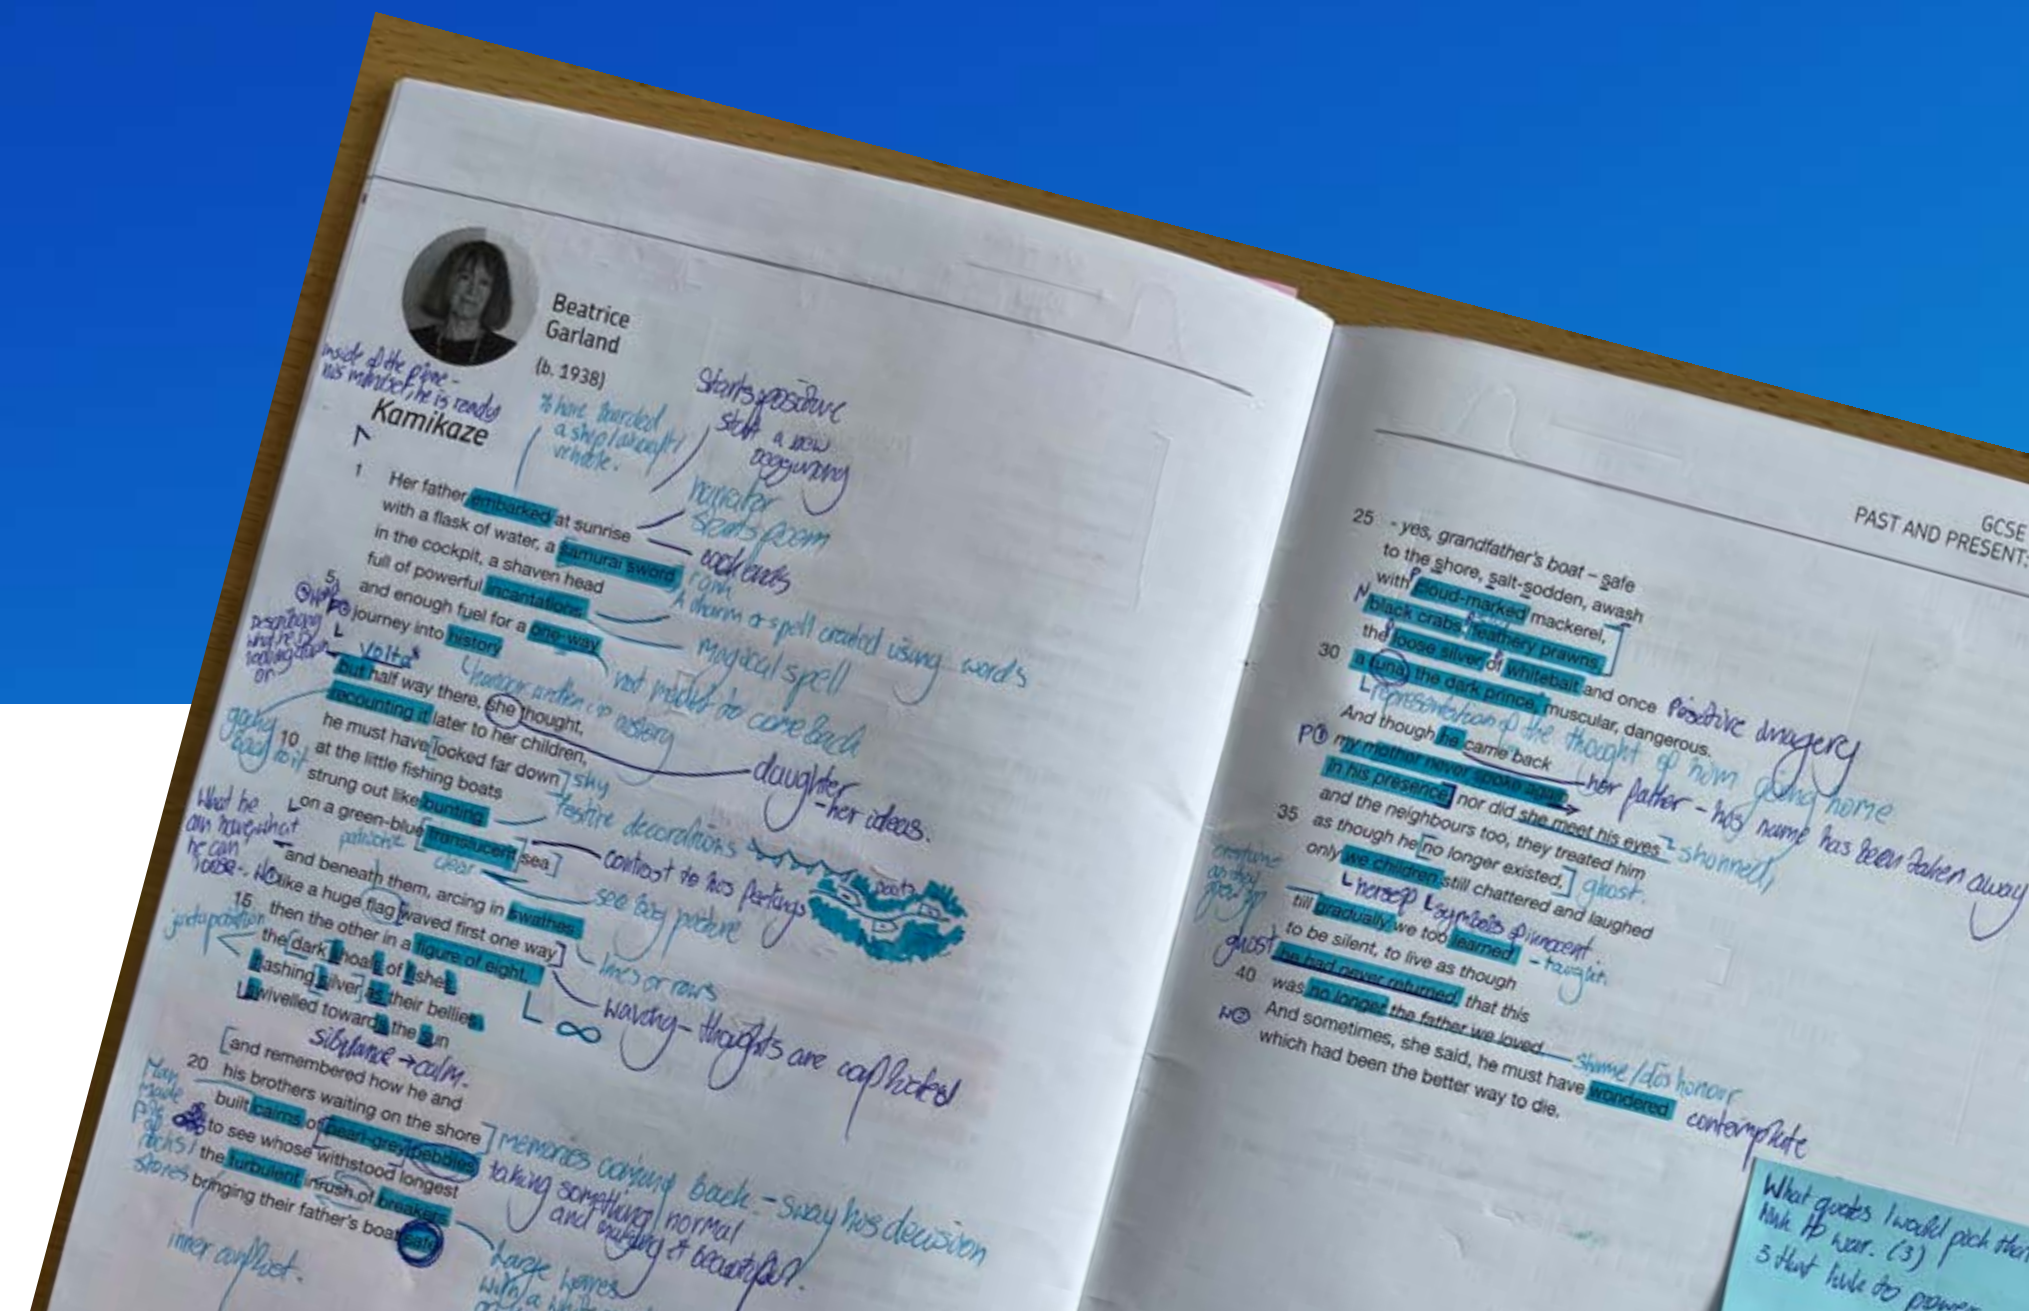 Beatrice
Garland
(b. 1938)
inside of the plane -
his mindset, he is ready
Kamikaze
to have boarded
a ship/aircraft/
vehicle.
Starts positive
start a new
beginning
narrator
starts poem
and ends
1 Her father embarked at sunrise
with a flask of water, a samurai sword
in the cockpit, a shaven head
full of powerful incantations
5 and enough fuel for a one-way
journey into history
A charm or spell created using words
magical spell
not meant to come back
honour written in history
describing
what he is
looking down
on
volta
but half way there, she thought,
recounting it later to her children,
he must have looked far down
10 at the little fishing boats
strung out like bunting
on a green-blue translucent sea
going
back to it
sky
daughter
- her ideas.
festive decorations
What he
can have, what
he can
patriotic
clear
contrast to his feelings
boats
see big picture
and beneath them, arcing in swathes
like a huge flag waved first one way
15 then the other in a figure of eight,
the dark shoals of fishes
flashing silver as their bellies
swivelled towards the sun
juxtaposition
lines or rows
∞
waving - thoughts are conflicted
sibilance → calm.
and remembered how he and
20 his brothers waiting on the shore
built cairns of pearl-grey pebbles
to see whose withstood longest
the turbulent inrush of breakers
bringing their father's boat safe
Man
made
pile
of
rocks/
stones
memories coming back - sway his decision
taking something normal
and making it beautiful.
inner conflict.
Large waves
with a
GCSE
PAST AND PRESENT:
25 - yes, grandfather's boat – safe
to the shore, salt-sodden, awash
with cloud-marked mackerel,
black crabs, feathery prawns,
the loose silver of whitebait and once
30 a tuna, the dark prince, muscular, dangerous.
Positive imagery
representation of the thought of him going home
And though he came back
my mother never spoke again
in his presence, nor did she meet his eyes
and the neighbours too, they treated him
35 as though he no longer existed,
only we children still chattered and laughed
her father - his name has been taken away
shunned,
ghost.
herself
symbols of innocent.
till gradually we too learned
to be silent, to live as though
he had never returned, that this
40 was no longer the father we loved.
And sometimes, she said, he must have wondered
which had been the better way to die.
ghost
- taught
shame/dishonour
contemplate
What quotes I would pick that
link to war. (3)
3 that link to power